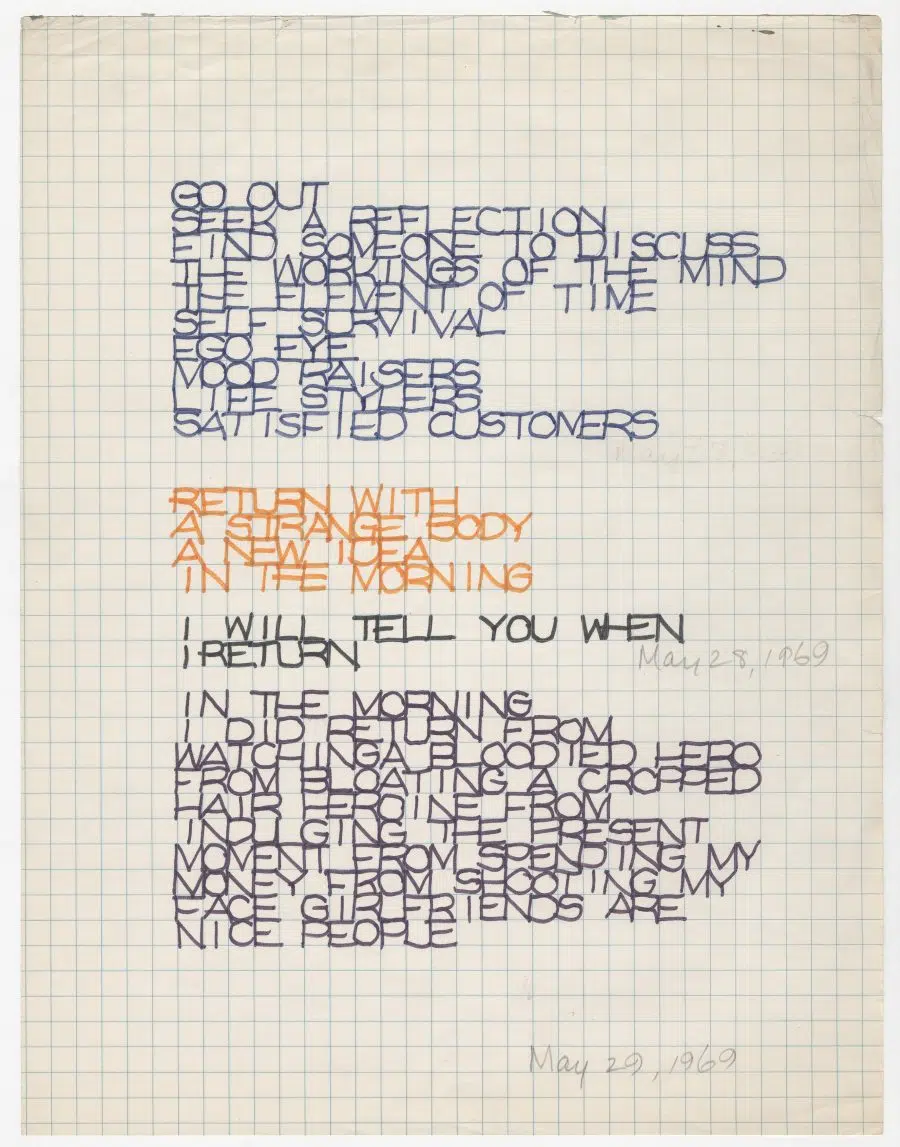 GO OUT
SEEK A REFLECTION
FIND SOMEONE TO DISCUSS
THE WORKINGS OF THE MIND
THE ELEMENT OF TIME
SELF SURVIVAL
EGO EYE
MOOD RAISERS
LIFE STYLERS
SATISFIED CUSTOMERS
RETURN WITH
A STRANGE BODY
A NEW IDEA
IN THE MORNING
I WILL TELL YOU WHEN
I RETURN
May 28, 1969
IN THE MORNING
I DID RETURN FROM
WATCHING A BLOODIED HERO
FROM BLOATING A CROPPED
HAIR HEROINE FROM
INDULGING THE PRESENT
MOMENT FROM SPENDING MY
MONEY FROM SHOOTING MY
FACE GIRLFRIENDS ARE
NICE PEOPLE
May 29, 1969